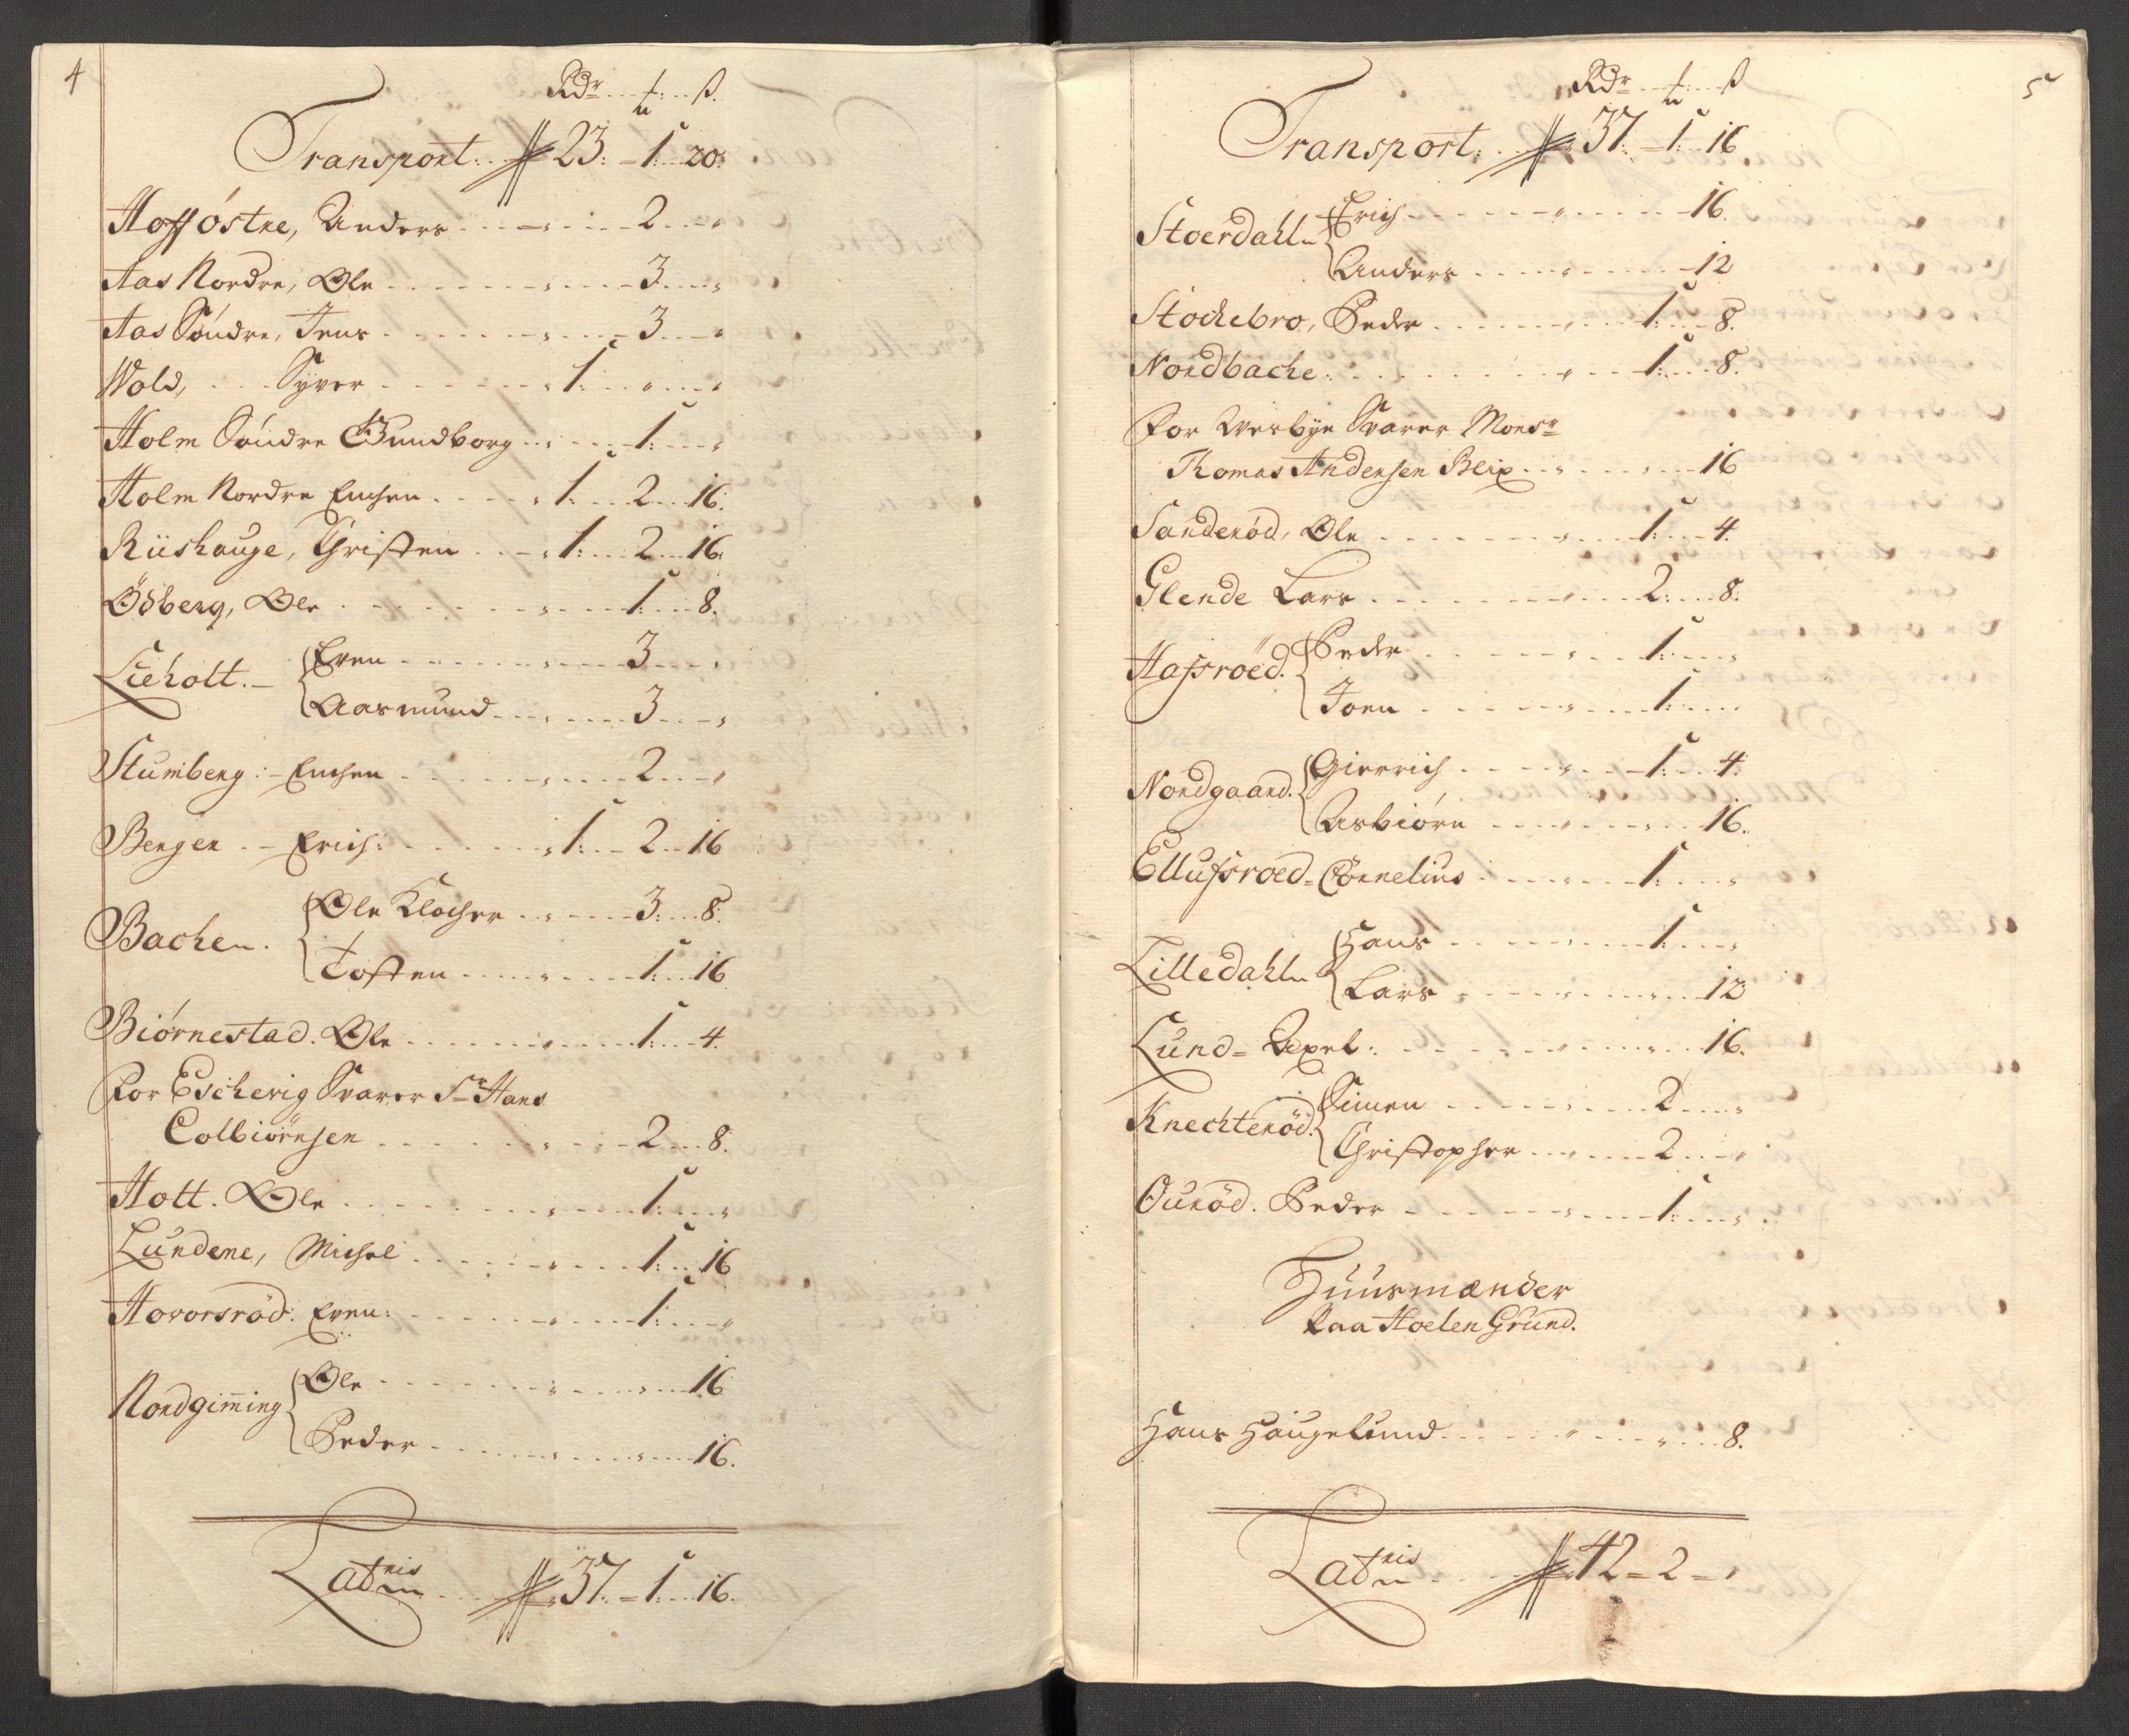 4
Rdr ß.
Transport: 23: 1: 20:
Hoff østre, Anders 2
Aas Nordre, Ole 3
Aas Søndre, Jens 3
Wold, Syver 1
Holm Søndre Gundborg 1
Holm Nordre 1 2 16
Riishauge, Christen 1 2 16
Ödberg, Ole 1 8
Lieholt. Even 3
Aasmund 3
Stumberg 2
Bergen Erich 1 2 16
Bachen. Ole Klocher 3 8
Tosten 1 16
Biørnestad. Ole 1 4
For Escherig Svarer Sr Hans
Colbiørnsen 2 8
Hott. Ole 1
Lundene, Michel 1 16
Hovorsröd: Even 1
Nordgiming Ole 16
Peder 16.
Latris 37. 1 16.
5
Rdr ß
Transport: 37 1 16
Stoerdahl Erich 16.
Anders 12
Stochebro, Peder 1 8.
Nordbache 1 8.
For Werbye Svarer Monsr
Thomas Andersen Blix 16
Sanderød, Ole 1 4.
Glende Lars 2 8.
Hafsroëd. Peder 1
Joen 1
Nordgaard. Gierrich 1 4.
Asbiørn 16.
Ellufsroed Cornelius 1
Lilledahl Hans 1
Lars 12
Lund Axel 16.
Knechteröd. Simen 2
Christopher 2
Ouröd. Peder 1
Huusmænder
Paa Hoelen Grund.
Hans Haugelund 8.
Latris 42 2